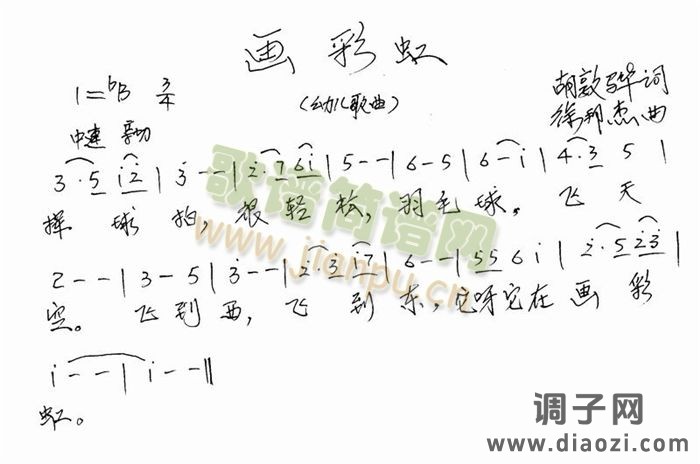 画彩虹
1=ᵇB 3/4
(幼儿歌曲)
胡敦骅词
徐邦杰曲
中速
3·5 i2|3--|2·7 6i|5--|6-5|6-i|4·3 5|
挥球拍,很轻松,羽毛球,飞天
2--|3-5|3--|2·3 i7|6--|55 6 i|2·5 23|
空。飞到西,飞到东,它呀它在画彩
i--|i--‖
虹。
歌谱简谱网
www.jianpu.cn
调子网
www.diaozi.com